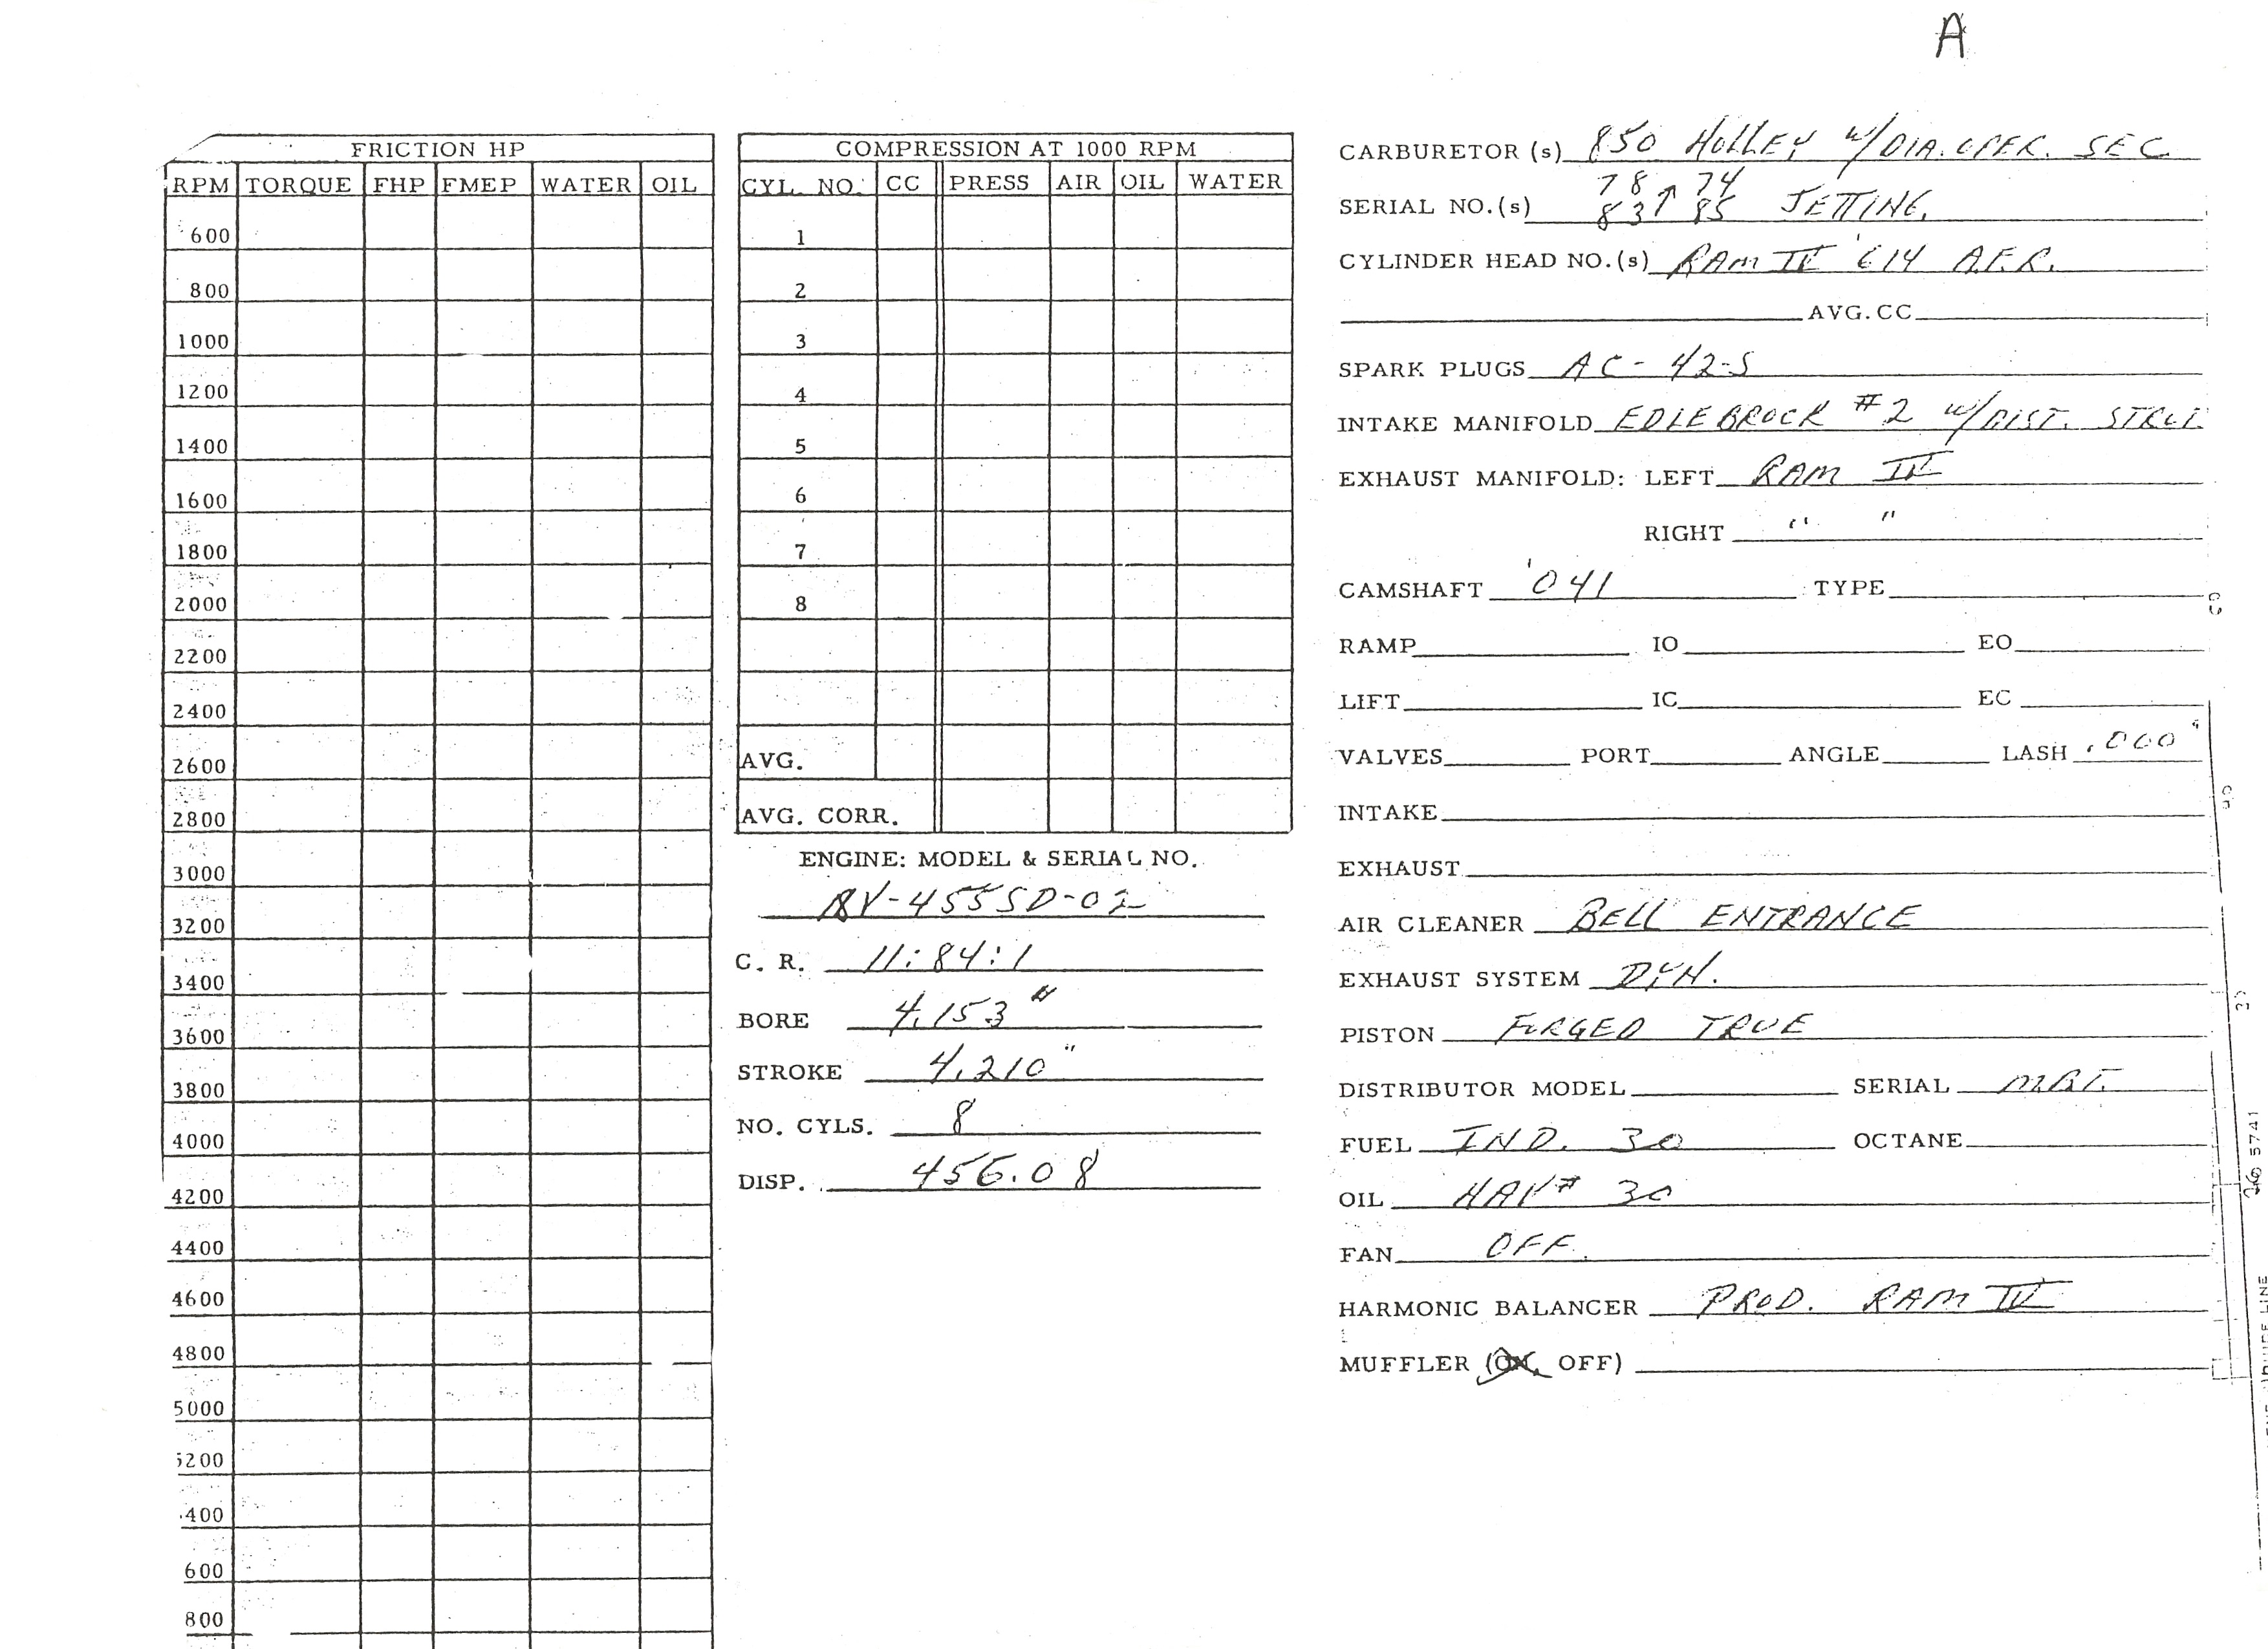 A
FRICTION HP
RPM TORQUE FHP FMEP WATER OIL
600
800
1000
1200
1400
1600
1800
2000
2200
2400
2600
2800
3000
3200
3400
3600
3800
4000
4200
4400
4600
4800
5000
5200
400
600
800
COMPRESSION AT 1000 RPM
CYL. NO. CC PRESS AIR OIL WATER
1
2
3
4
5
6
7
8
AVG.
AVG. CORR.
ENGINE: MODEL & SERIAL NO.
8V-455SD-02
C. R. 11:84:1
BORE 4.153"
STROKE 4.210"
NO. CYLS. 8
DISP. 456.08
CARBURETOR (s) 850 HOLLEY W/DIA. OPER. SEC.
78 74
SERIAL NO.(s) 83↑ 85 JETTING.
CYLINDER HEAD NO.(s) RAM IV '614 A.F.R.
AVG. CC
SPARK PLUGS AC-42-S
INTAKE MANIFOLD EDLEBROCK #2 W/DIST.
EXHAUST MANIFOLD: LEFT RAM IV
RIGHT " "
CAMSHAFT '041 TYPE
RAMP IO EO
LIFT IC EC
VALVES PORT ANGLE LASH .000"
INTAKE
EXHAUST
AIR CLEANER BELL ENTRANCE
EXHAUST SYSTEM DYN.
PISTON FORGED TRUE
DISTRIBUTOR MODEL SERIAL
FUEL IND. 30 OCTANE
OIL HAV# 30
FAN OFF.
HARMONIC BALANCER PROD. RAM IV
MUFFLER (ON, OFF)
5741
LINE